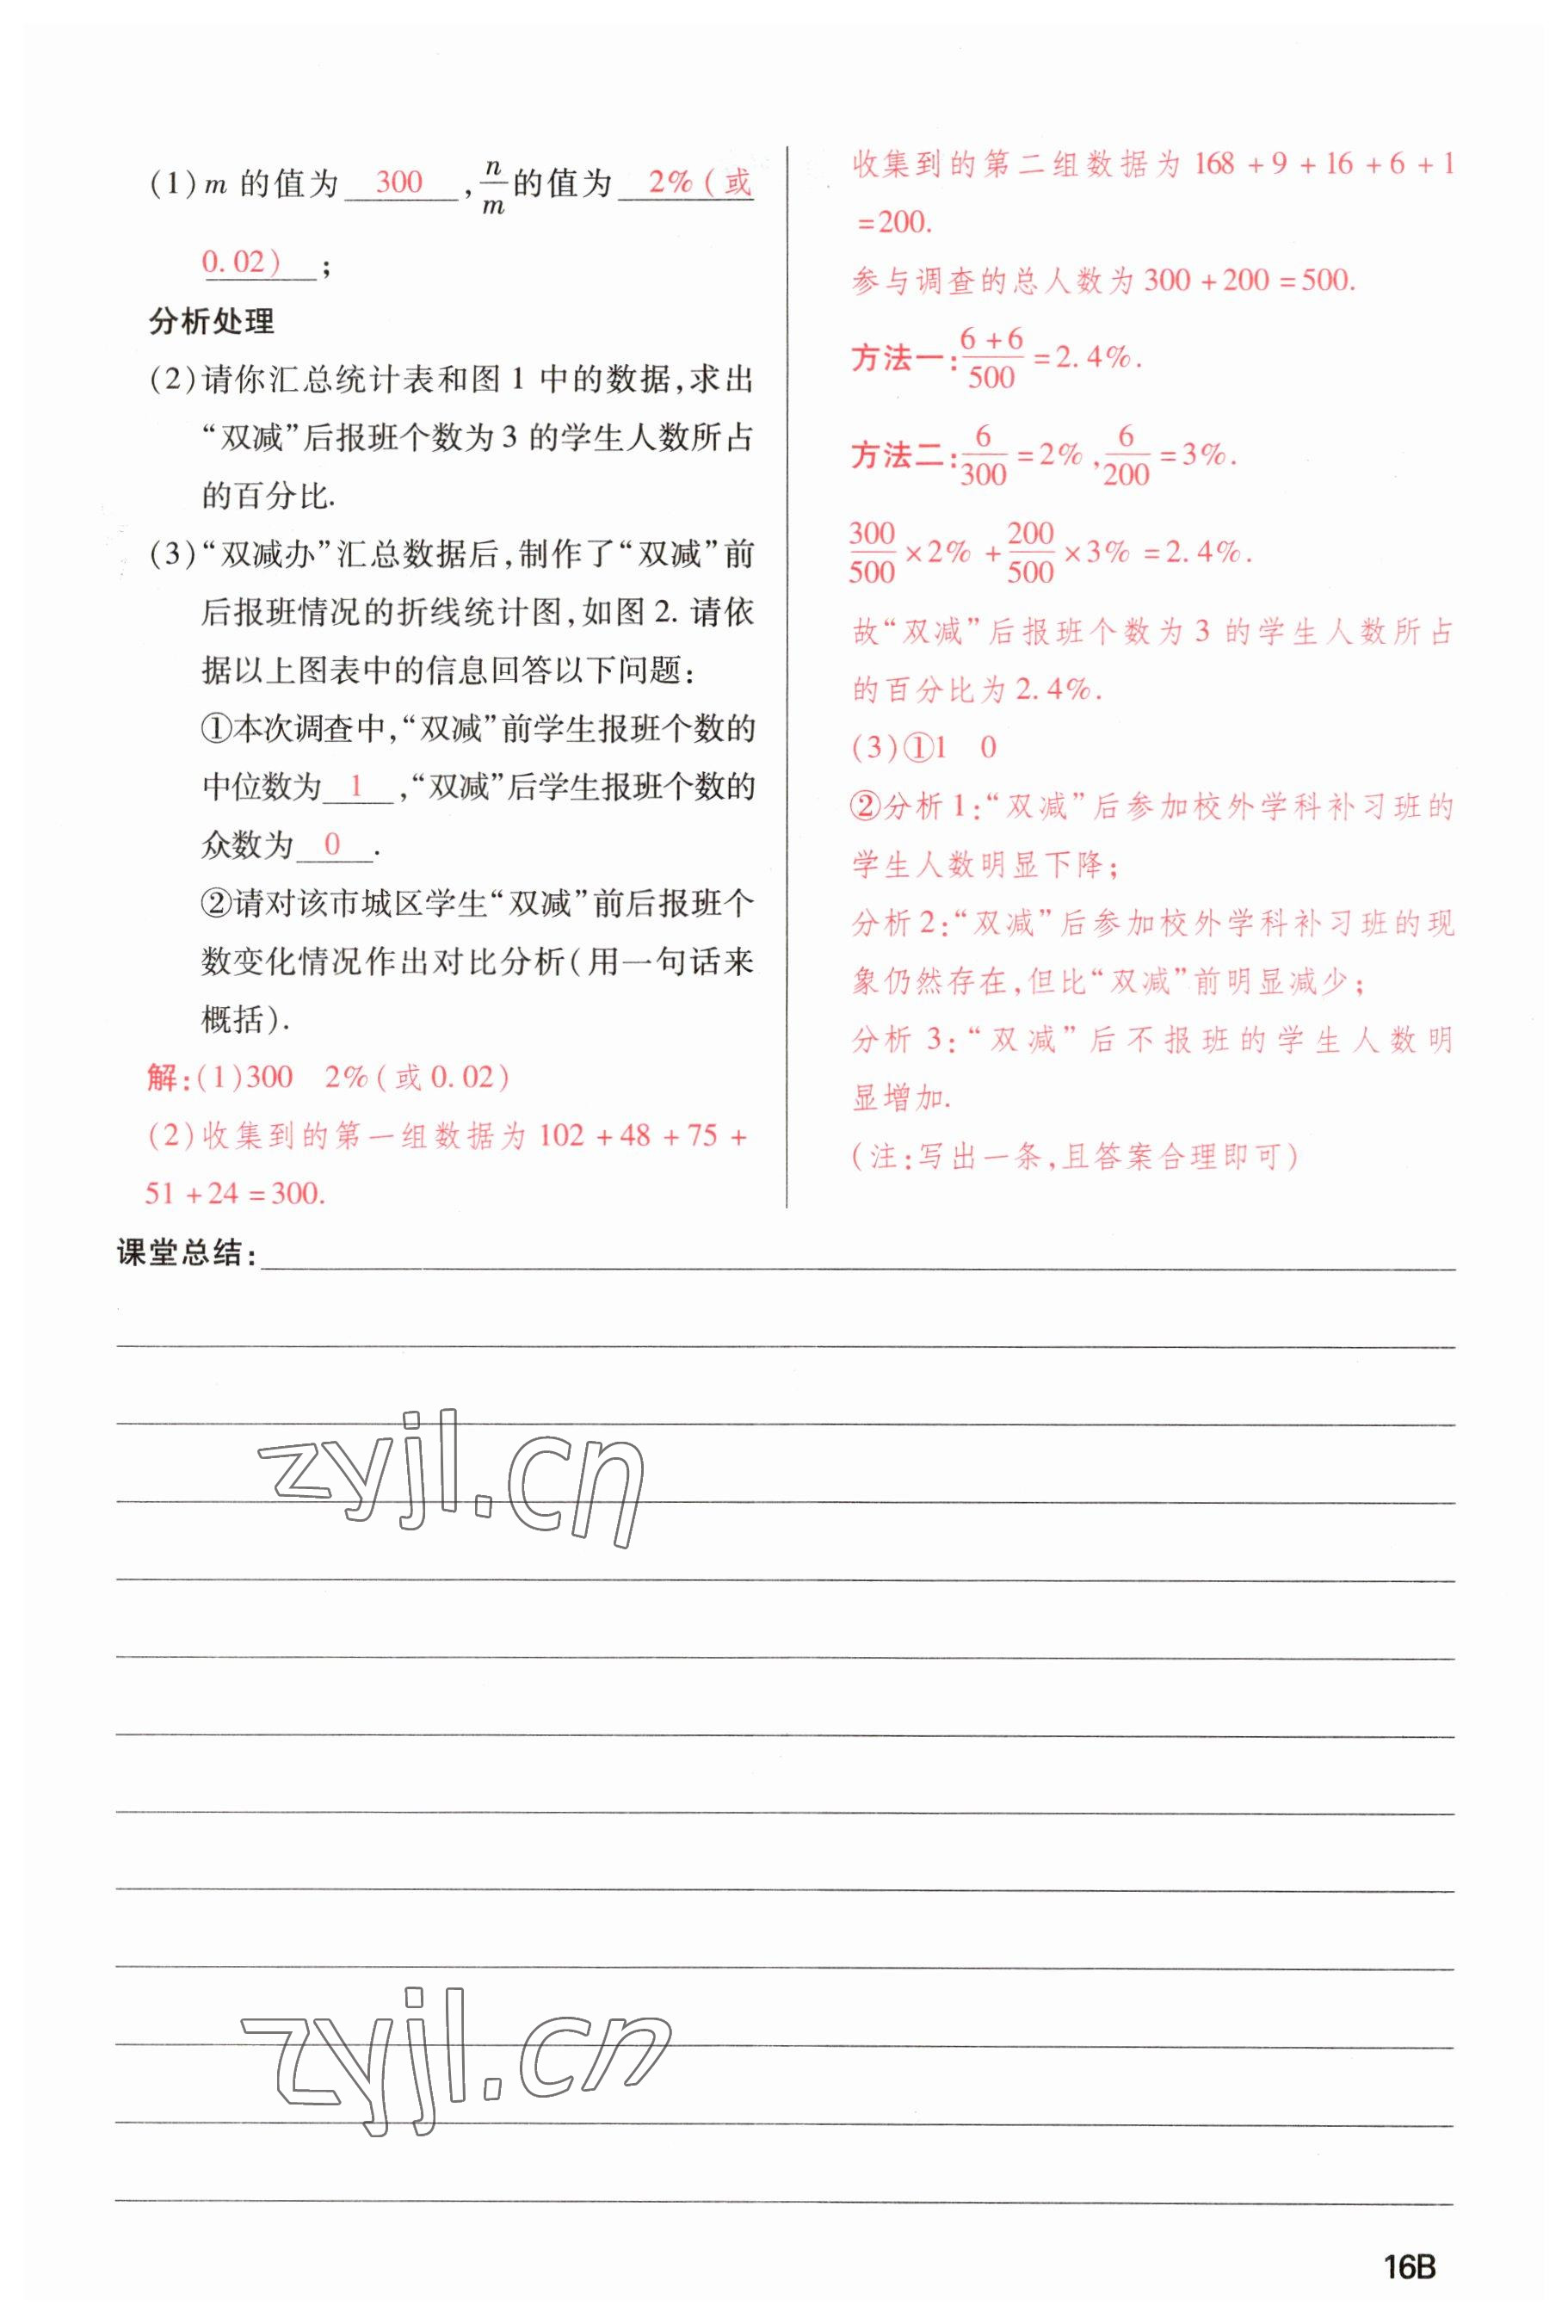 (1)m 的值为 300 ,n/m的值为 2%(或
0.02) ;
分析处理
(2)请你汇总统计表和图1中的数据,求出
“双减”后报班个数为3的学生人数所占
的百分比.
(3)“双减办”汇总数据后,制作了“双减”前
后报班情况的折线统计图,如图2.请依
据以上图表中的信息回答以下问题:
①本次调查中,“双减”前学生报班个数的
中位数为 1 ,“双减”后学生报班个数的
众数为 0 .
②请对该市城区学生“双减”前后报班个
数变化情况作出对比分析(用一句话来
概括).
解:(1)300 2%(或0.02)
(2)收集到的第一组数据为102+48+75+
51+24=300.
收集到的第二组数据为168+9+16+6+1
=200.
参与调查的总人数为300+200=500.
方法一:(6+6)/500=2.4%.
方法二:6/300=2%,6/200=3%.
300/500×2%+200/500×3%=2.4%.
故“双减”后报班个数为3的学生人数所占
的百分比为2.4%.
(3)①1 0
②分析1:“双减”后参加校外学科补习班的
学生人数明显下降;
分析2:“双减”后参加校外学科补习班的现
象仍然存在,但比“双减”前明显减少;
分析3:“双减”后不报班的学生人数明
显增加.
(注:写出一条,且答案合理即可)
课堂总结:
zyjl.cn
zyjl.cn
16B